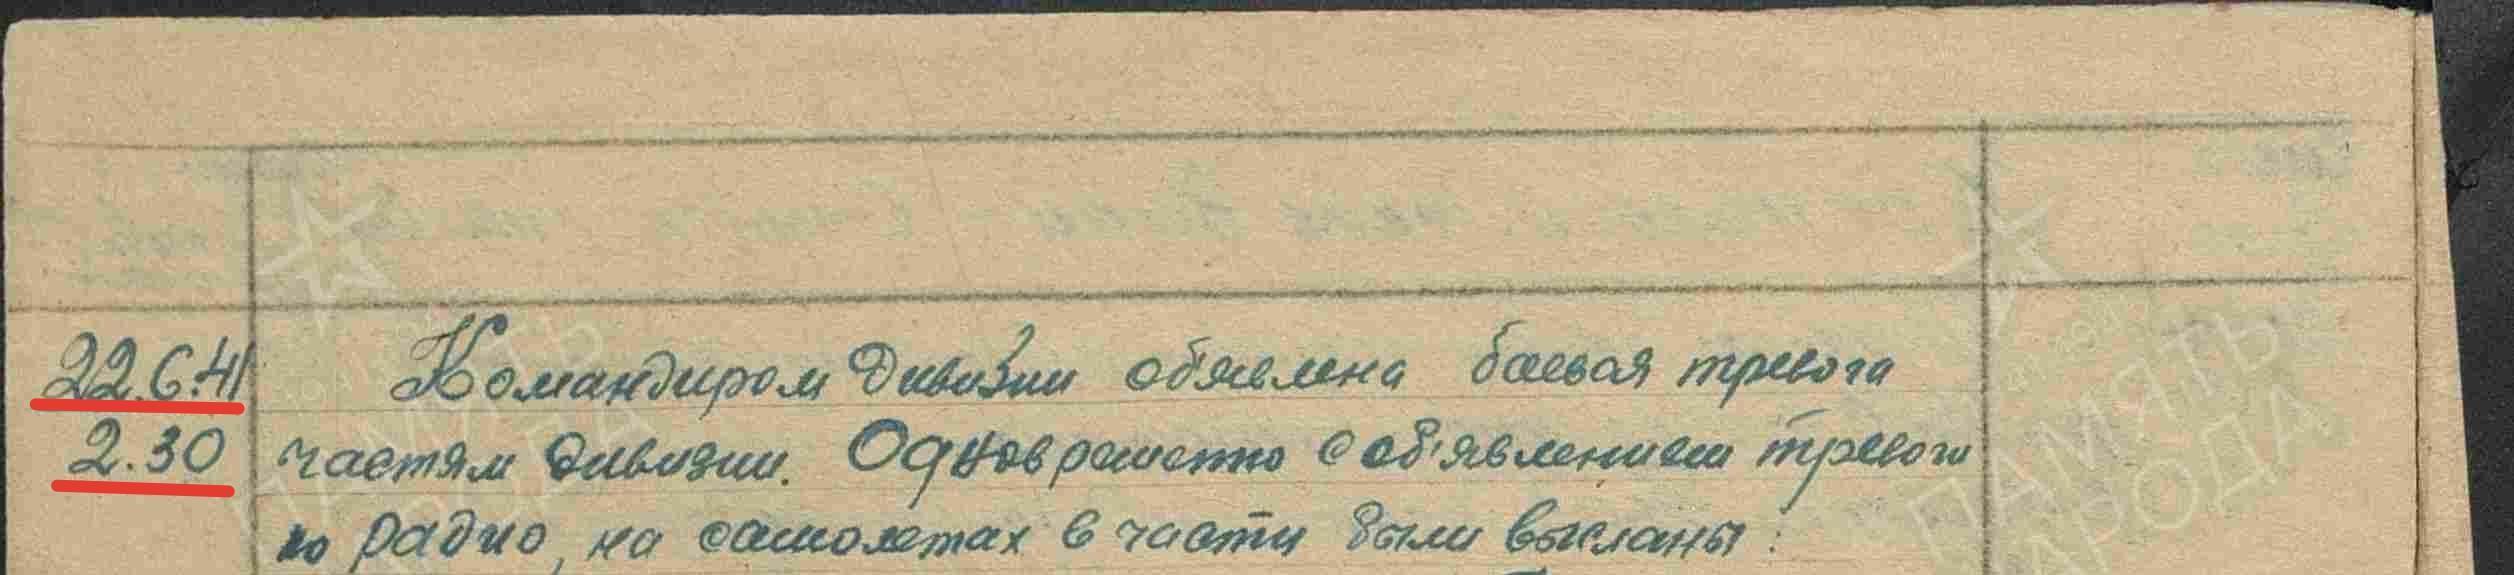 22.6.41 Командиром Дивизии об'явлена боевая тревога
2.30 частям дивизии. Одновременно с об'явлением тревоги
по радио, на самолетах в части были высланы:
ПАМЯТЬ
НАРОДА
ПАМЯТЬ
НАРОДА